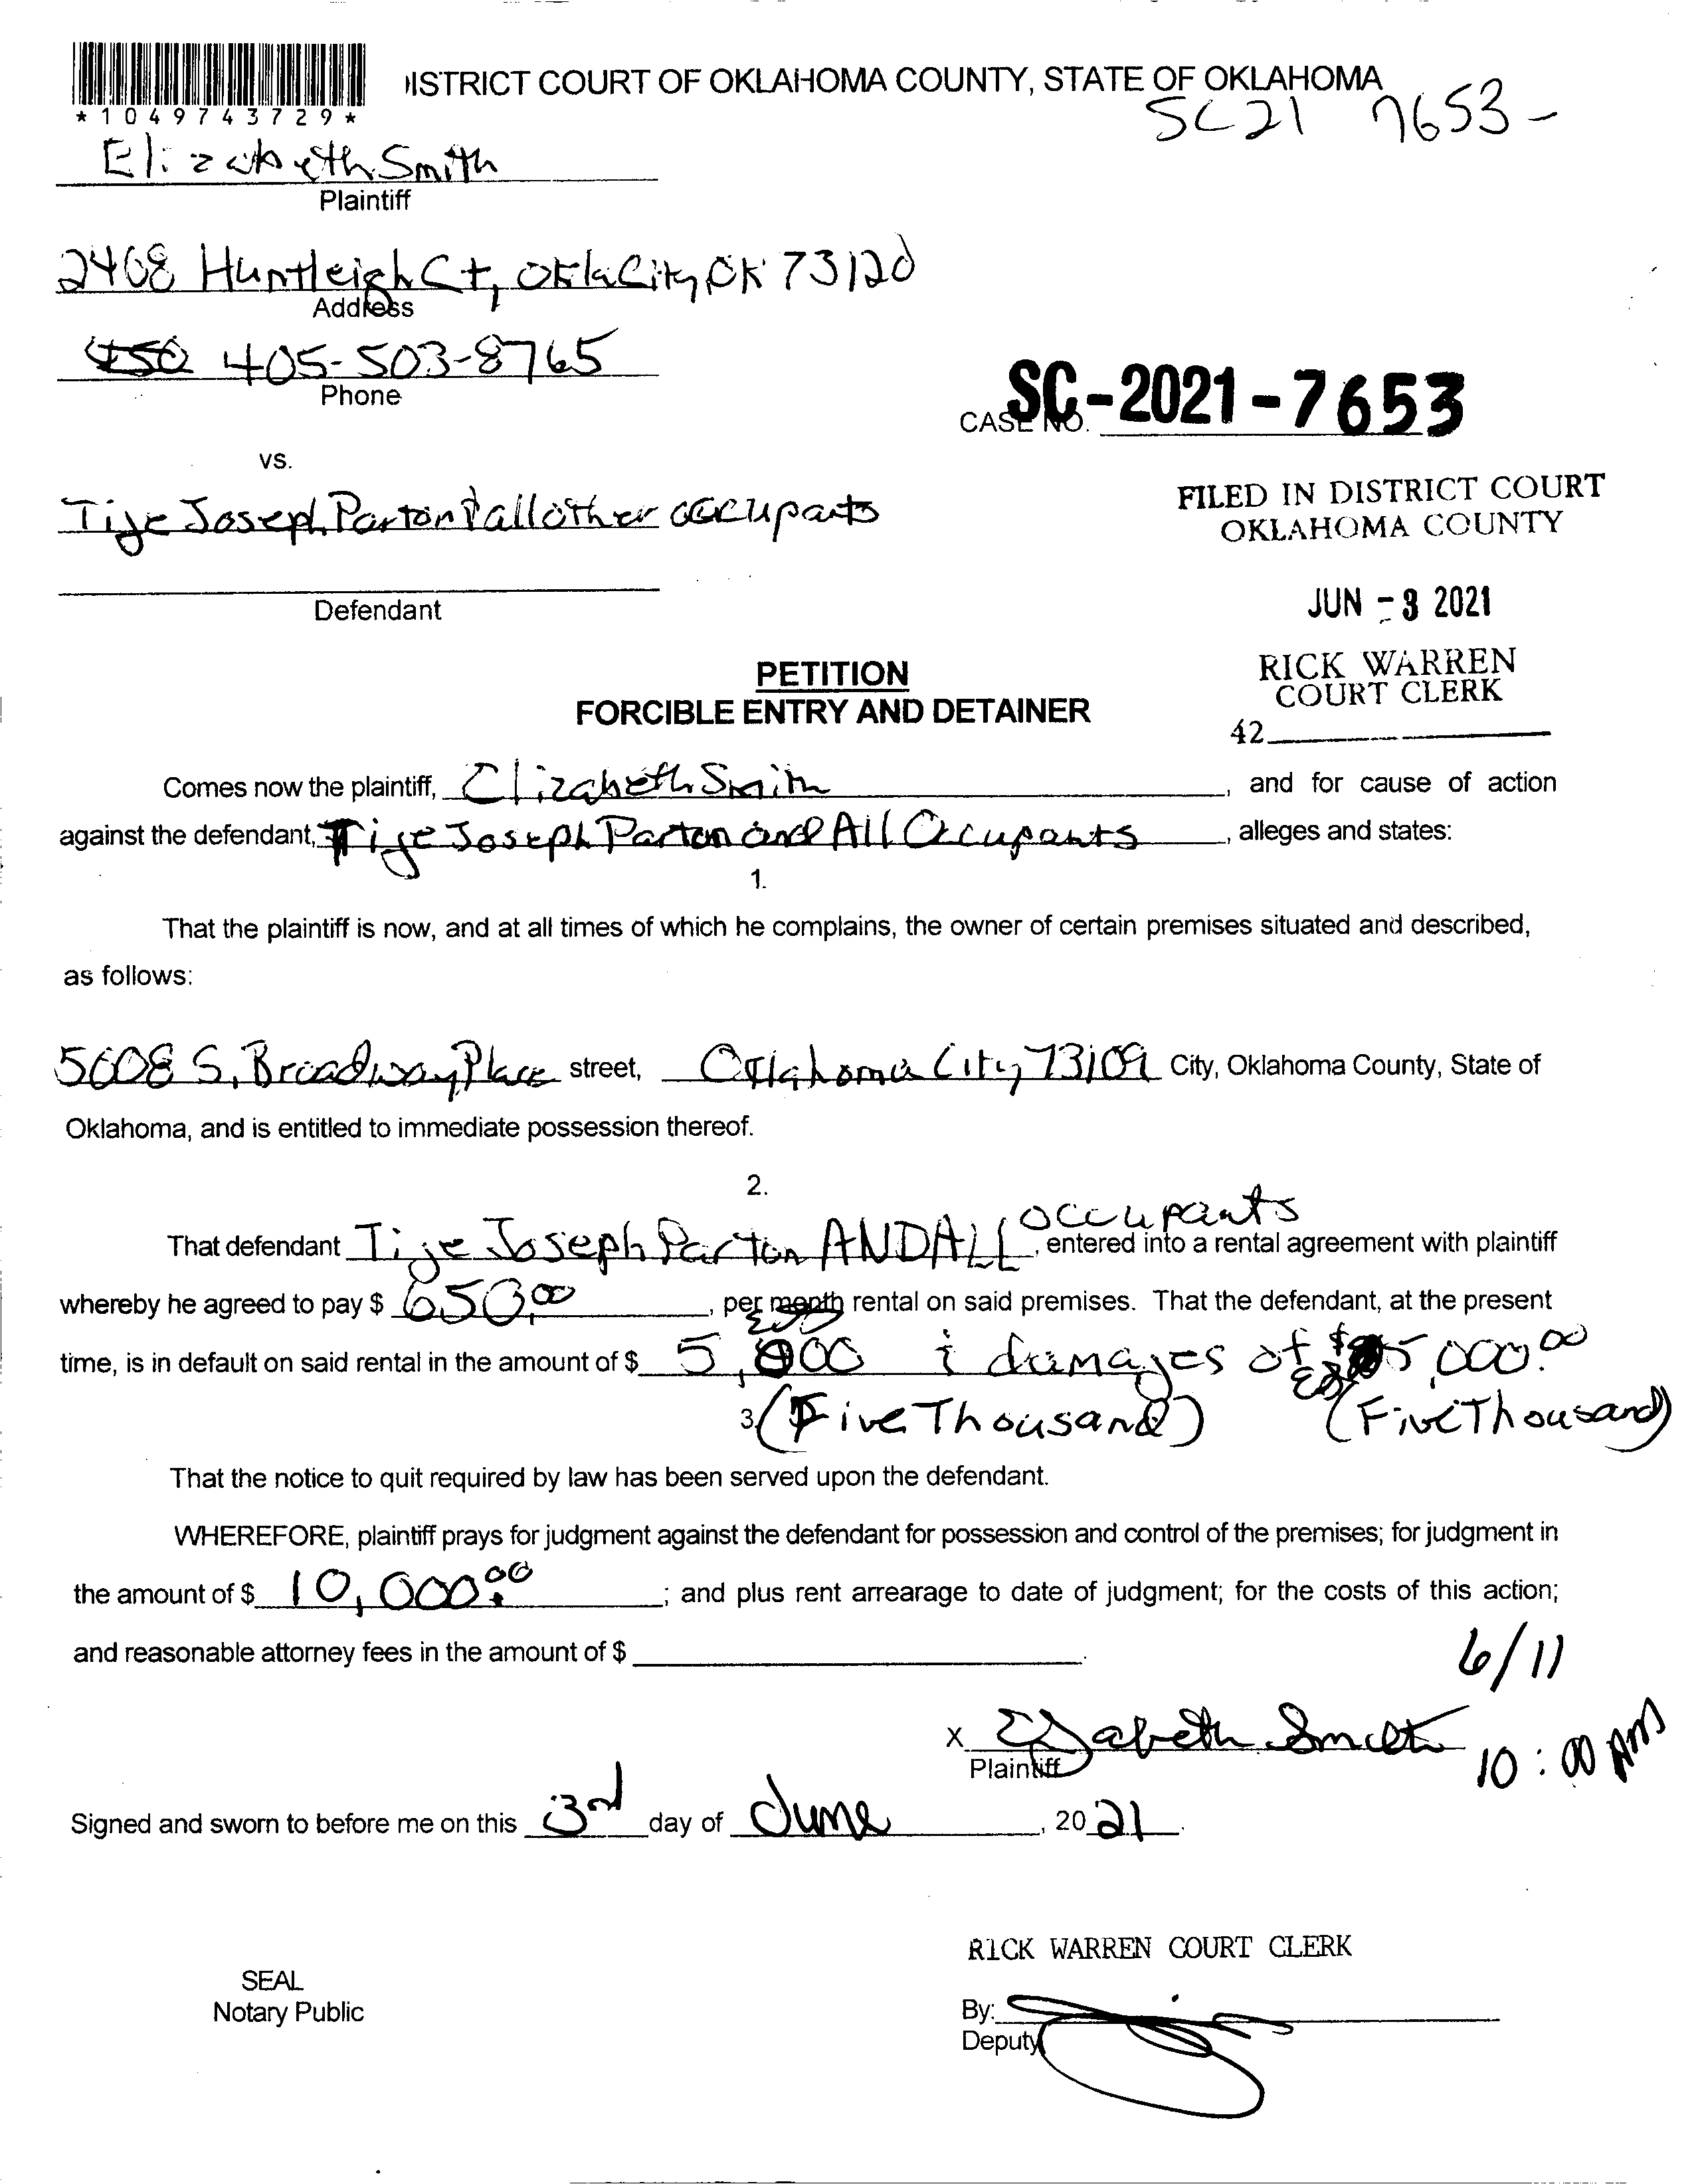 *1049743729*
ISTRICT COURT OF OKLAHOMA COUNTY, STATE OF OKLAHOMA
SC21 7653-
Elizabeth Smith
Plaintiff
2408 Huntleigh Ct, Okla City, OK 73120
Address
405-503-8765
Phone
CASE NO. SC-2021-7653
vs.
Tije Joseph Parton & all other occupants
FILED IN DISTRICT COURT
OKLAHOMA COUNTY
Defendant
JUN - 3 2021
PETITION
RICK WARREN
COURT CLERK
FORCIBLE ENTRY AND DETAINER
42
Comes now the plaintiff, Elizabeth Smith, and for cause of action
against the defendant, Tije Joseph Parton and All Occupants, alleges and states:
1.
That the plaintiff is now, and at all times of which he complains, the owner of certain premises situated and described,
as follows:
5608 S. Broadway Place street, Oklahoma City 73109 City, Oklahoma County, State of
Oklahoma, and is entitled to immediate possession thereof.
2.
That defendant Tije Joseph Parton AND ALL occupants, entered into a rental agreement with plaintiff
whereby he agreed to pay $ 650.00, per month rental on said premises. That the defendant, at the present
time, is in default on said rental in the amount of $ 5,000 & damages of $5,000.00
3. (Five Thousand) (Five Thousand)
That the notice to quit required by law has been served upon the defendant.
WHEREFORE, plaintiff prays for judgment against the defendant for possession and control of the premises; for judgment in
the amount of $ 10,000.00; and plus rent arrearage to date of judgment; for the costs of this action;
and reasonable attorney fees in the amount of $ .
6/11
X Elizabeth Smith
Plaintiff
10:00 AM
Signed and sworn to before me on this 3rd day of June, 2021.
RICK WARREN COURT CLERK
SEAL
Notary Public
By:
Deputy